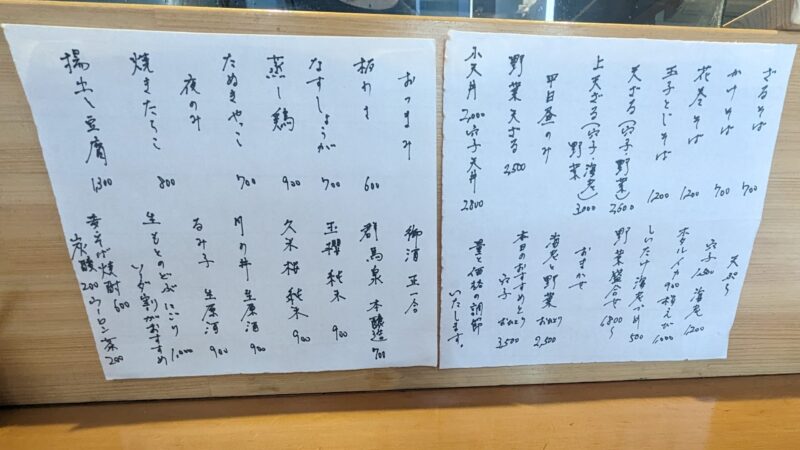 ざるそば 700
かけそば 700
花巻そば 1200
玉子とじそば 1200
天ざる(穴子・野菜) 2600
上天ざる(穴子 海老 野菜) 3000
平日昼のみ
野菜天ざる 2500
小天丼 2,000 穴子天丼 2800
天ぷら
穴子 1500 海老 1200
ホタルイカ 900 稚えび 1000
しいたけ海老づめ 500
野菜盛合せ 1800〜
おまかせ
海老と野菜 2,500
本日のおすすめと穴子 3,500
量と価格の調節
いたします。
おつまみ
板わさ 600
なすしょうが 700
蒸し鶏 900
たぬきやっこ 700
夜のみ
焼きたらこ 800
揚出し豆腐 1300
御酒 正一合
群馬泉 本醸造 700
玉櫻 純米 900
久米桜 純米 900
月の井 生原酒 900
るみ子 生原酒 900
生もとのどぶ にごり 1,000
ソーダ割がおすすめ
そば焼酎 600
炭酸 200 ウーロン茶 200